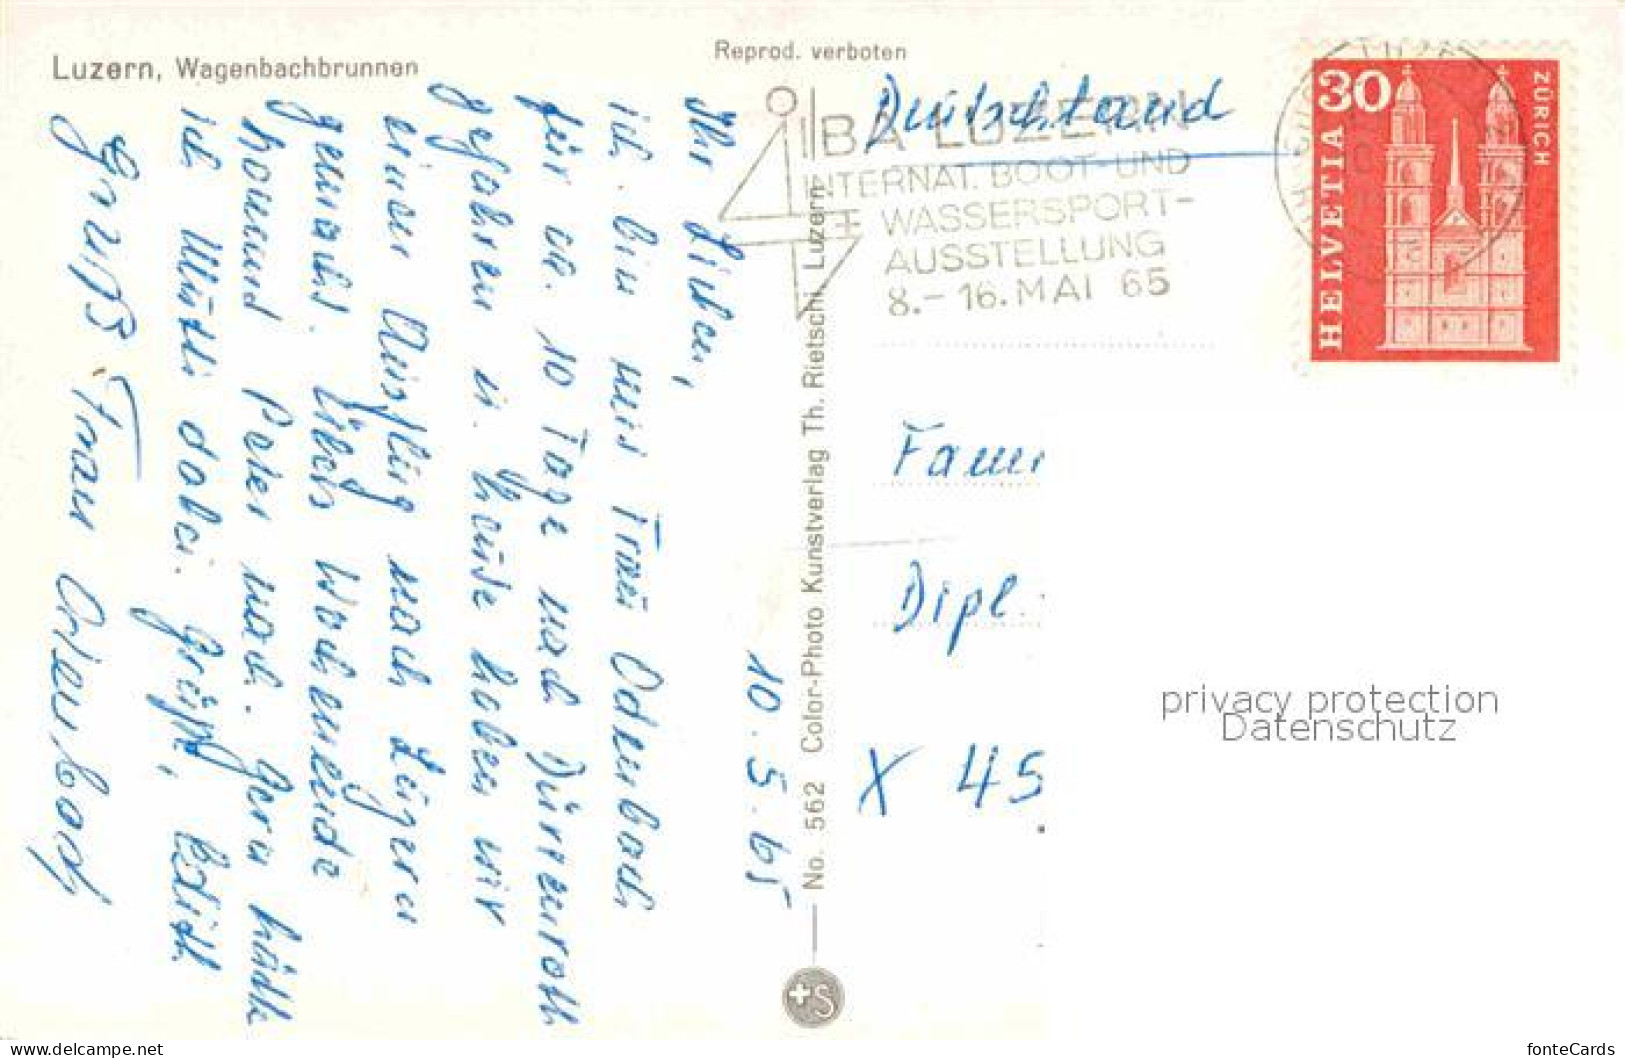 Luzern, Wagenbachbrunnen
Reprod. verboten
10.5.65
Ihr Lieben,
ich bin mit Frau Odenbach
für ca. 10 Tage nach Dürrenroth
gefahren u. heute haben wir
einen Ausflug nach Luzern
gemacht. Übers Wochenende
kommt Peter nach. Gern hätte
ich Mutti dabei. Grüße, Edith
Gruß Frau Odenbach
No. 562 Color-Photo Kunstverlag Th. Rietschi, Luzern
+S
IBA LUZERN
INTERNAT. BOOT- UND
+ WASSERSPORT-
AUSSTELLUNG
8.-16. MAI 65
Deutschland
30
HELVETIA
ZÜRICH
Fam
Dipl.
X 45
privacy protection
Datenschutz
www.delcampe.net
fonteCards